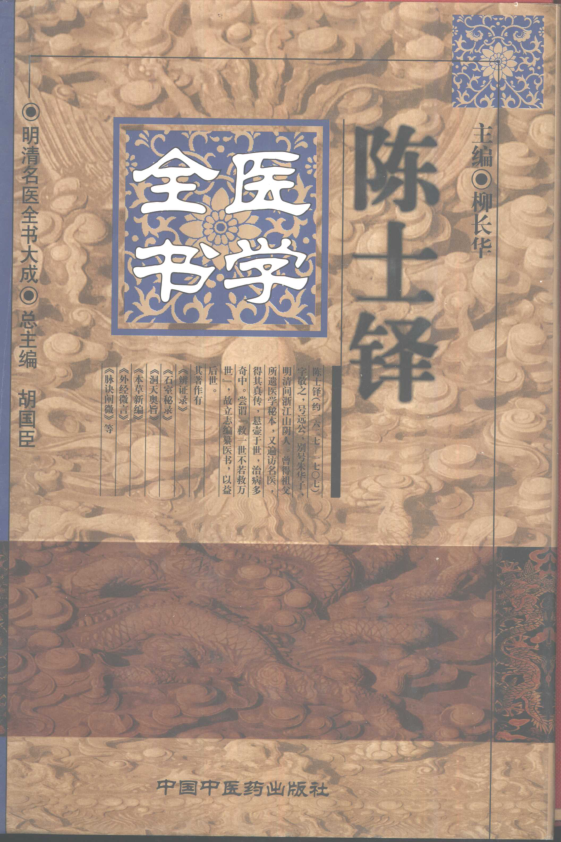 主编◉柳长华
陈士铎
医学
全书
陈士铎(约一六二七—一七〇七)
字敬之,号远公,别号朱华子,
明清间浙江山阴人。曾得祖父
所遗医学秘本,又遍访名医,
得其真传,悬壶于世,治病多
奇中。尝谓“救一世不若救万
世”,故立志编纂医书,以益
后世。
其著作有
《辨证录》
《石室秘录》
《洞天奥旨》
《本草新编》
《外经微言》
《脉诀阐微》等
◉明清名医全书大成◉总主编 胡国臣
中国中医药出版社